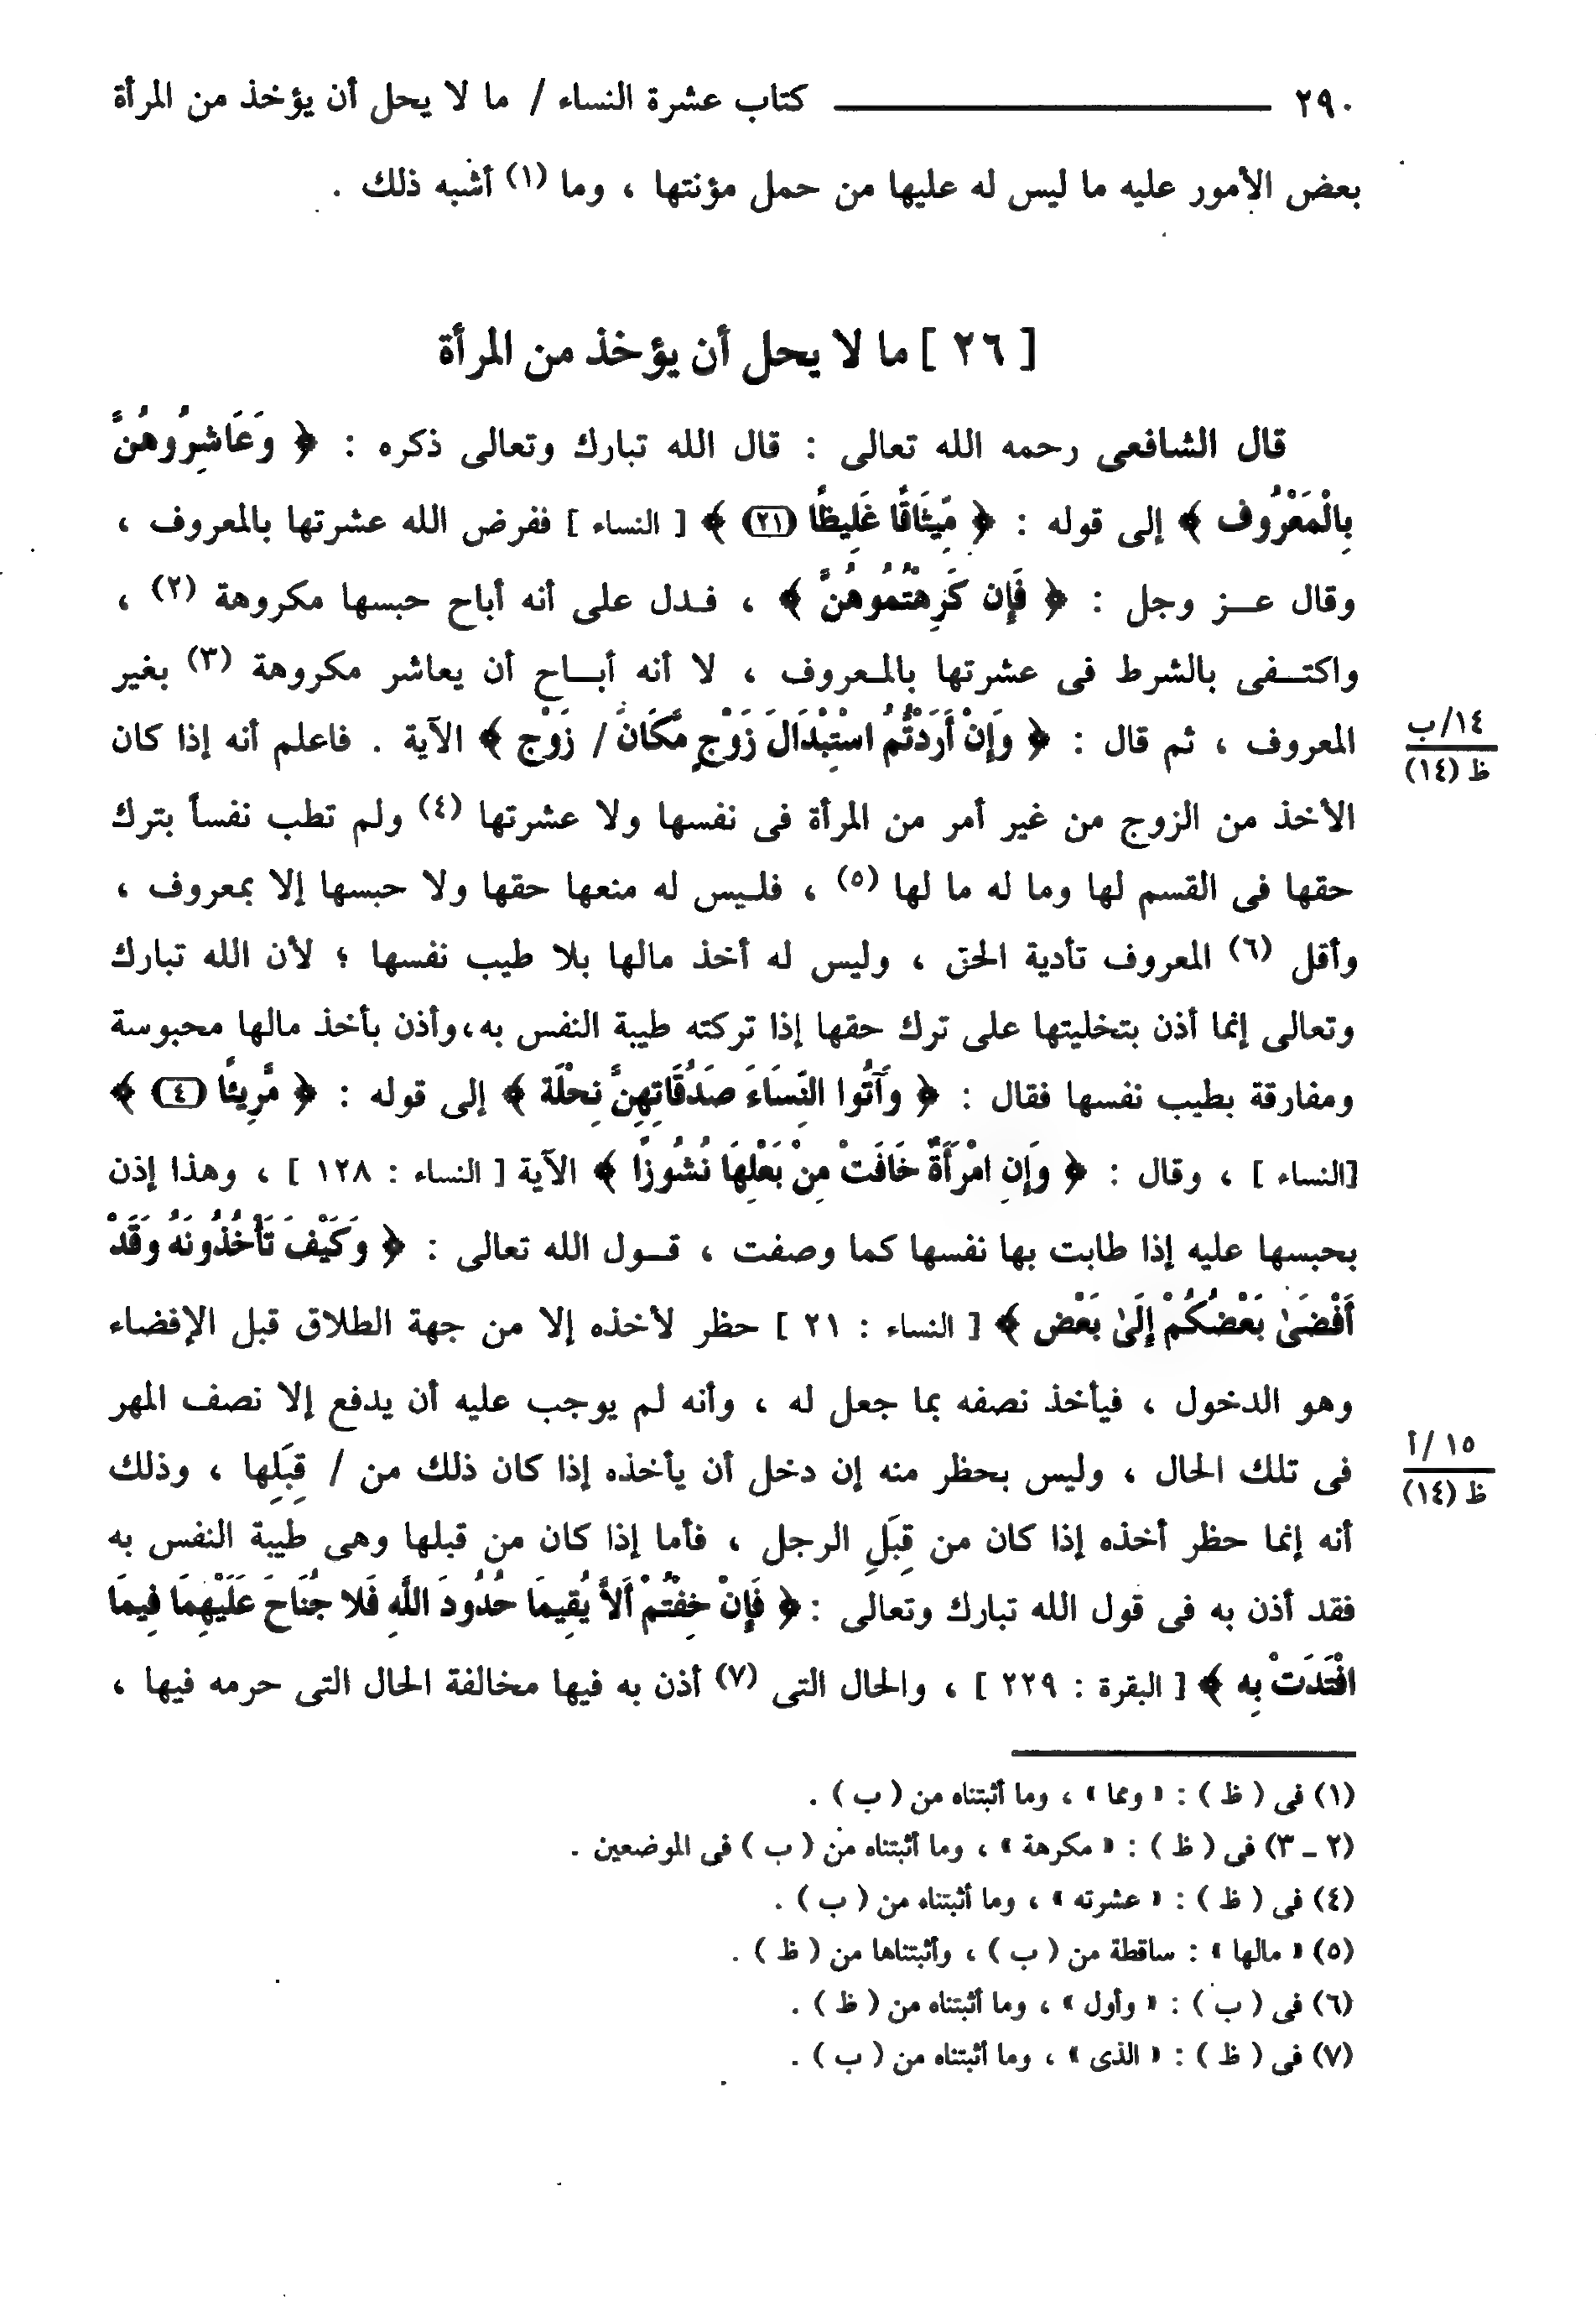 ٢٩٠ كتاب عشرة النساء / ما لا يحل أن يؤخذ من المرأة
بعض الأمور عليه ما ليس له عليها من حمل مؤنتها ، وما (١) أشبه ذلك .
[ ٢٦ ] ما لا يحل أن يؤخذ من المرأة
قال الشافعى رحمه الله تعالى : قال الله تبارك وتعالى ذكره : ﴿ وَعَاشِرُوهُنَّ
بِالْمَعْرُوفِ ﴾ إلى قوله : ﴿ مِّيثَاقًا غَلِيظًا (٢١) ﴾ [ النساء ] ففرض الله عشرتها بالمعروف ،
وقال عز وجل : ﴿ فَإِن كَرِهْتُمُوهُنَّ ﴾ ، فدل على أنه أباح حبسها مكروهة (٢) ،
واكتفى بالشرط فى عشرتها بالمعروف ، لا أنه أباح أن يعاشر مكروهة (٣) بغير
المعروف ، ثم قال : ﴿ وَإِنْ أَرَدْتُّمُ اسْتِبْدَالَ زَوْجٍ مَّكَانَ / زَوْجٍ ﴾ الآية . فاعلم أنه إذا كان
١٤/ب
ظ (١٤)
الأخذ من الزوج من غير أمر من المرأة فى نفسها ولا عشرتها (٤) ولم تطب نفساً بترك
حقها فى القسم لها وما له ما لها (٥) ، فليس له منعها حقها ولا حبسها إلا بمعروف ،
وأقل (٦) المعروف تأدية الحق ، وليس له أخذ مالها بلا طيب نفسها ؛ لأن الله تبارك
وتعالى إنما أذن بتخليتها على ترك حقها إذا تركته طيبة النفس به،وأذن بأخذ مالها محبوسة
ومفارقة بطيب نفسها فقال : ﴿ وَآتُوا النِّسَاءَ صَدُقَاتِهِنَّ نِحْلَةً ﴾ إلى قوله : ﴿ مَّرِيئًا (٤) ﴾
[النساء ] ، وقال : ﴿ وَإِنِ امْرَأَةٌ خَافَتْ مِنْ بَعْلِهَا نُشُوزًا ﴾ الآية [ النساء : ١٢٨ ] ، وهذا إذن
بحبسها عليه إذا طابت بها نفسها كما وصفت ، قول الله تعالى : ﴿ وَكَيْفَ تَأْخُذُونَهُ وَقَدْ
أَفْضَىٰ بَعْضُكُمْ إِلَىٰ بَعْضٍ ﴾ [ النساء : ٢١ ] حظر لأخذه إلا من جهة الطلاق قبل الإفضاء
وهو الدخول ، فيأخذ نصفه بما جعل له ، وأنه لم يوجب عليه أن يدفع إلا نصف المهر
فى تلك الحال ، وليس بحظر منه إن دخل أن يأخذه إذا كان ذلك من / قِبَلِها ، وذلك
١٥ /أ
ظ (١٤)
أنه إنما حظر أخذه إذا كان من قِبَلِ الرجل ، فأما إذا كان من قبلها وهى طيبة النفس به
فقد أذن به فى قول الله تبارك وتعالى :﴿ فَإِنْ خِفْتُمْ أَلاَّ يُقِيمَا حُدُودَ اللَّهِ فَلا جُنَاحَ عَلَيْهِمَا فِيمَا
افْتَدَتْ بِهِ ﴾ [ البقرة : ٢٢٩ ] ، والحال التى (٧) أذن به فيها مخالفة الحال التى حرمه فيها ،
(١) فى ( ظ ) : « ومما » ، وما أثبتناه من ( ب ) .
(٢ ـ ٣) فى ( ظ ) : « مكرهة » ، وما أثبتناه من ( ب ) فى الموضعين .
(٤) فى ( ظ ) : « عشرته » ، وما أثبتناه من ( ب ) .
(٥) « مالها » : ساقطة من ( ب ) ، وأثبتناها من ( ظ ) .
(٦) فى ( ب ) : « وأول » ، وما أثبتناه من ( ظ ) .
(٧) فى ( ظ ) : « الذى » ، وما أثبتناه من ( ب ) .